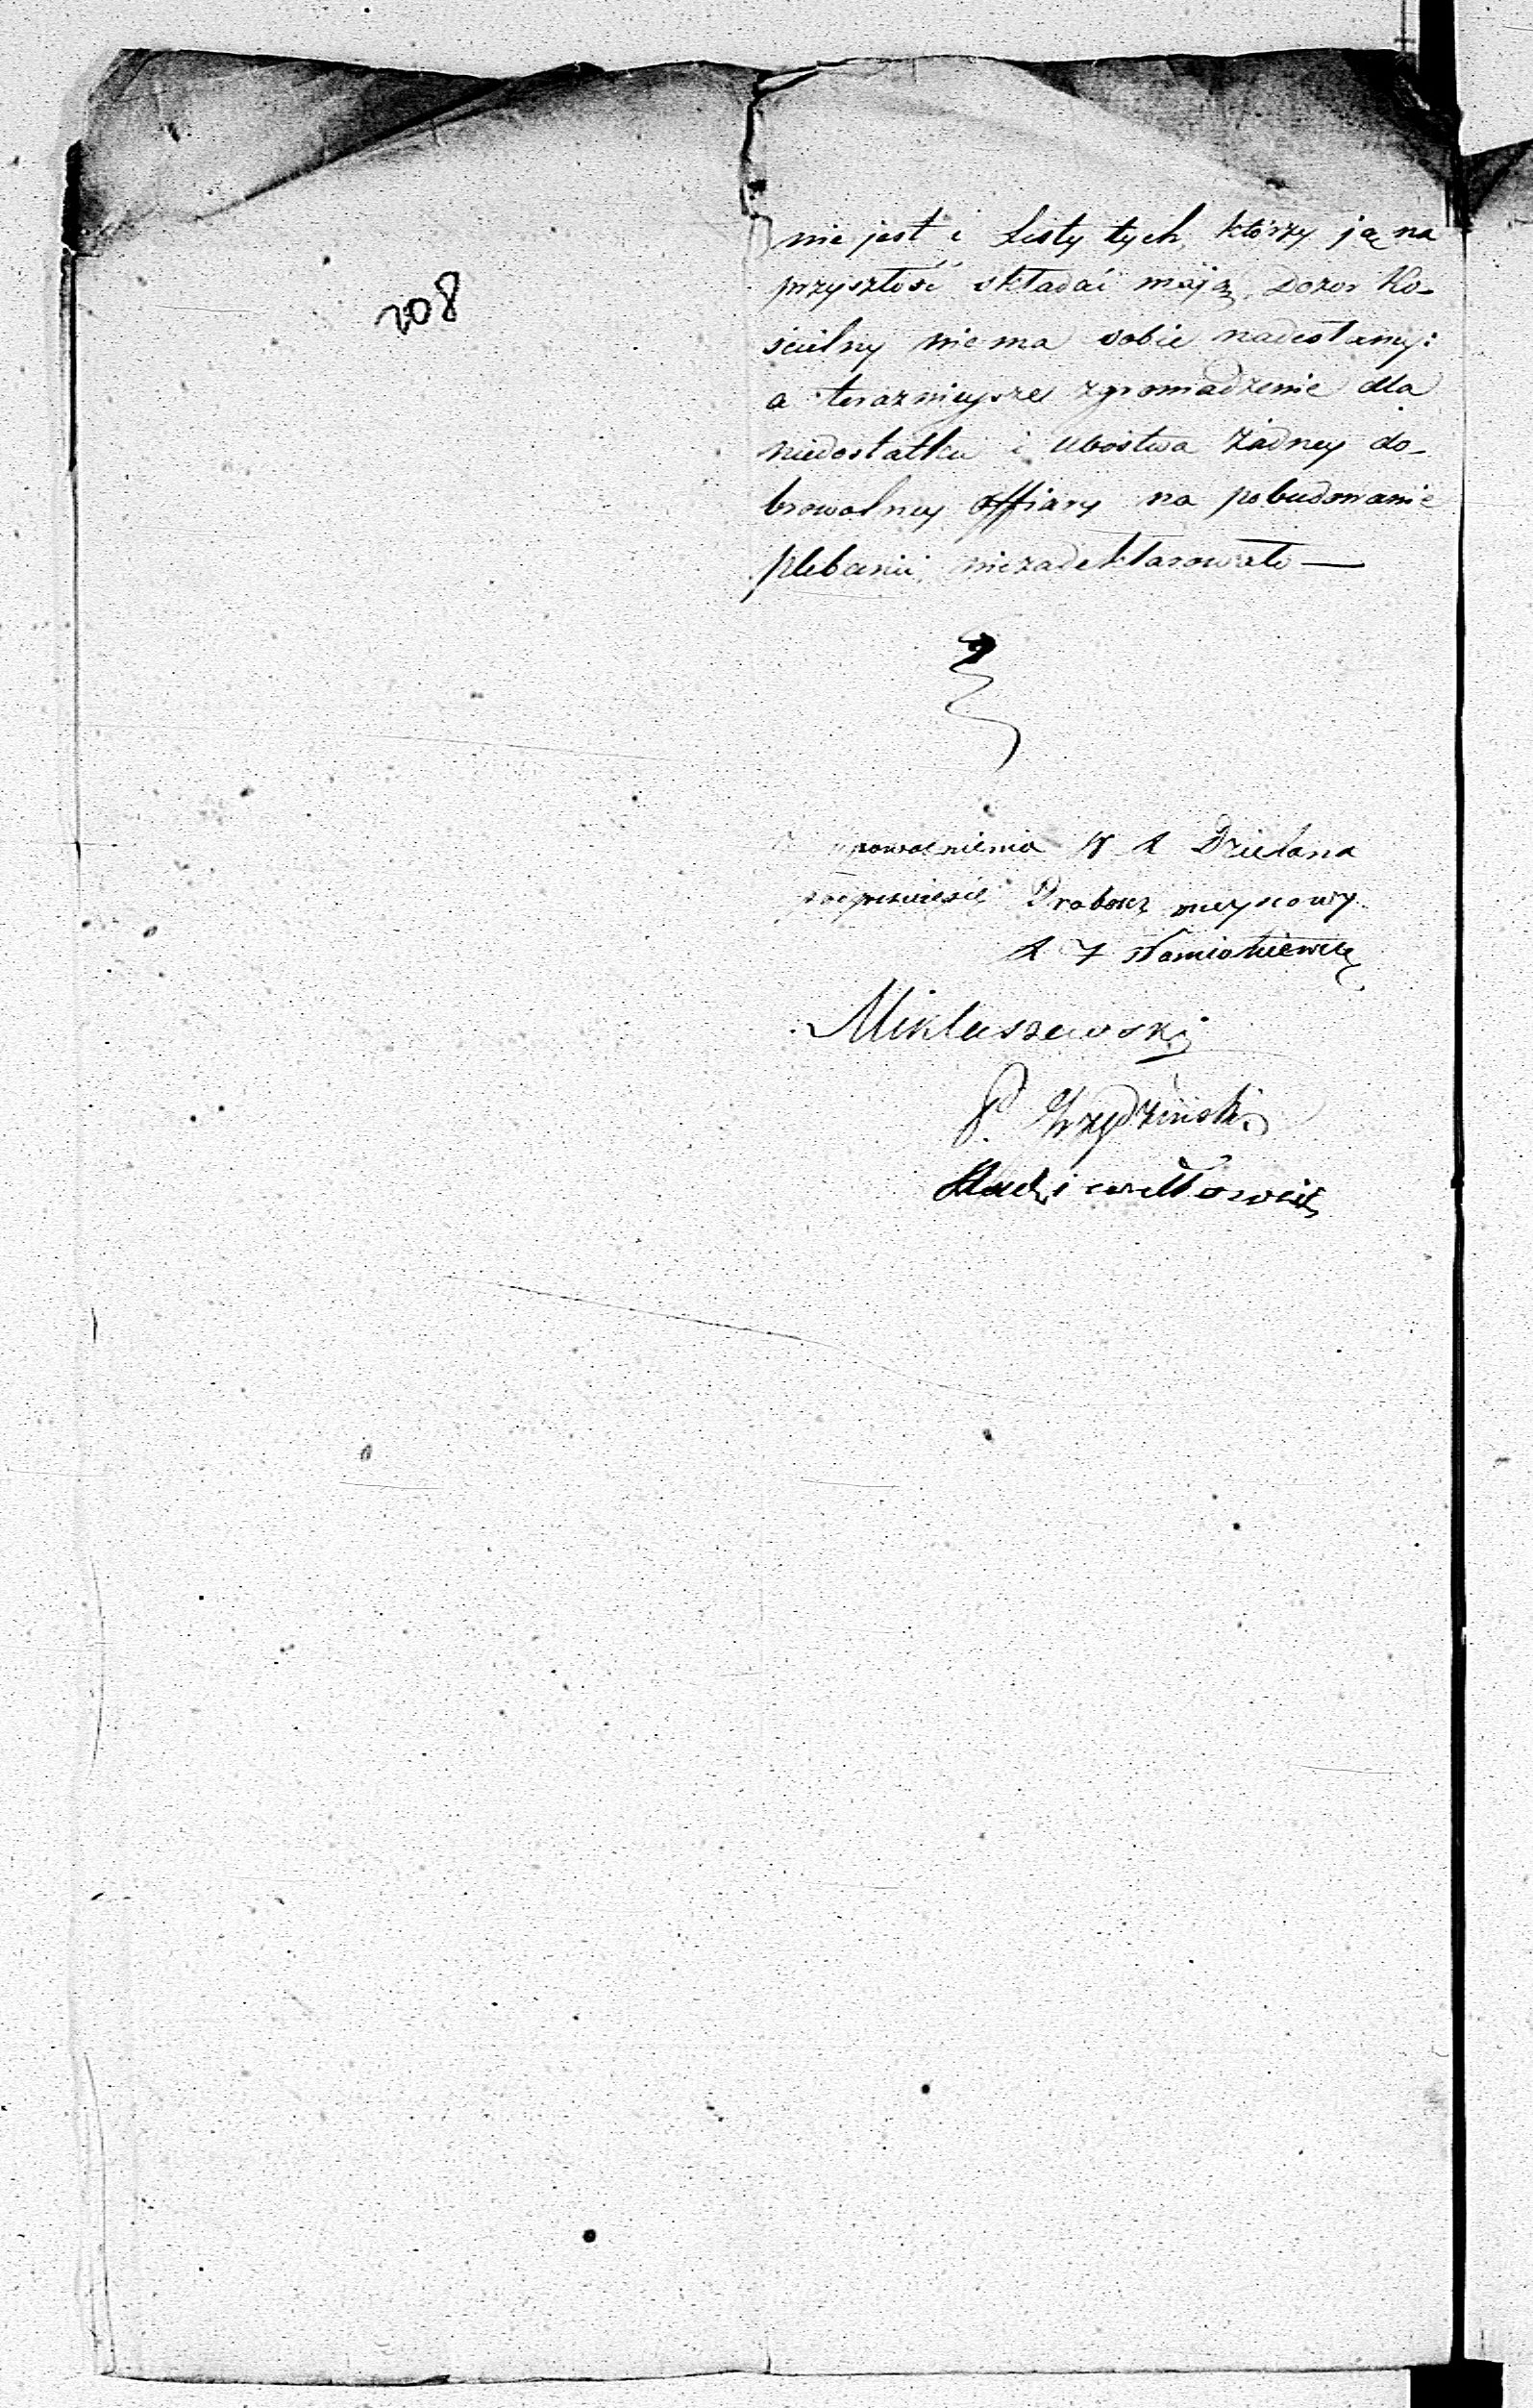 208
nie jest i Listy tych, którzy ją na
przyszłość składać mają, Dozor Ko-
ścielny niema sobie nadesłaney:
a teraznieysze zgromadzenie dla
niedostatku i ubostwa żadney do-
browolney offiary na pobudowanie
plebanii niezadeklarowało —
Dziekana
Proboszcz mieyscowy
Mikluszewski
P.